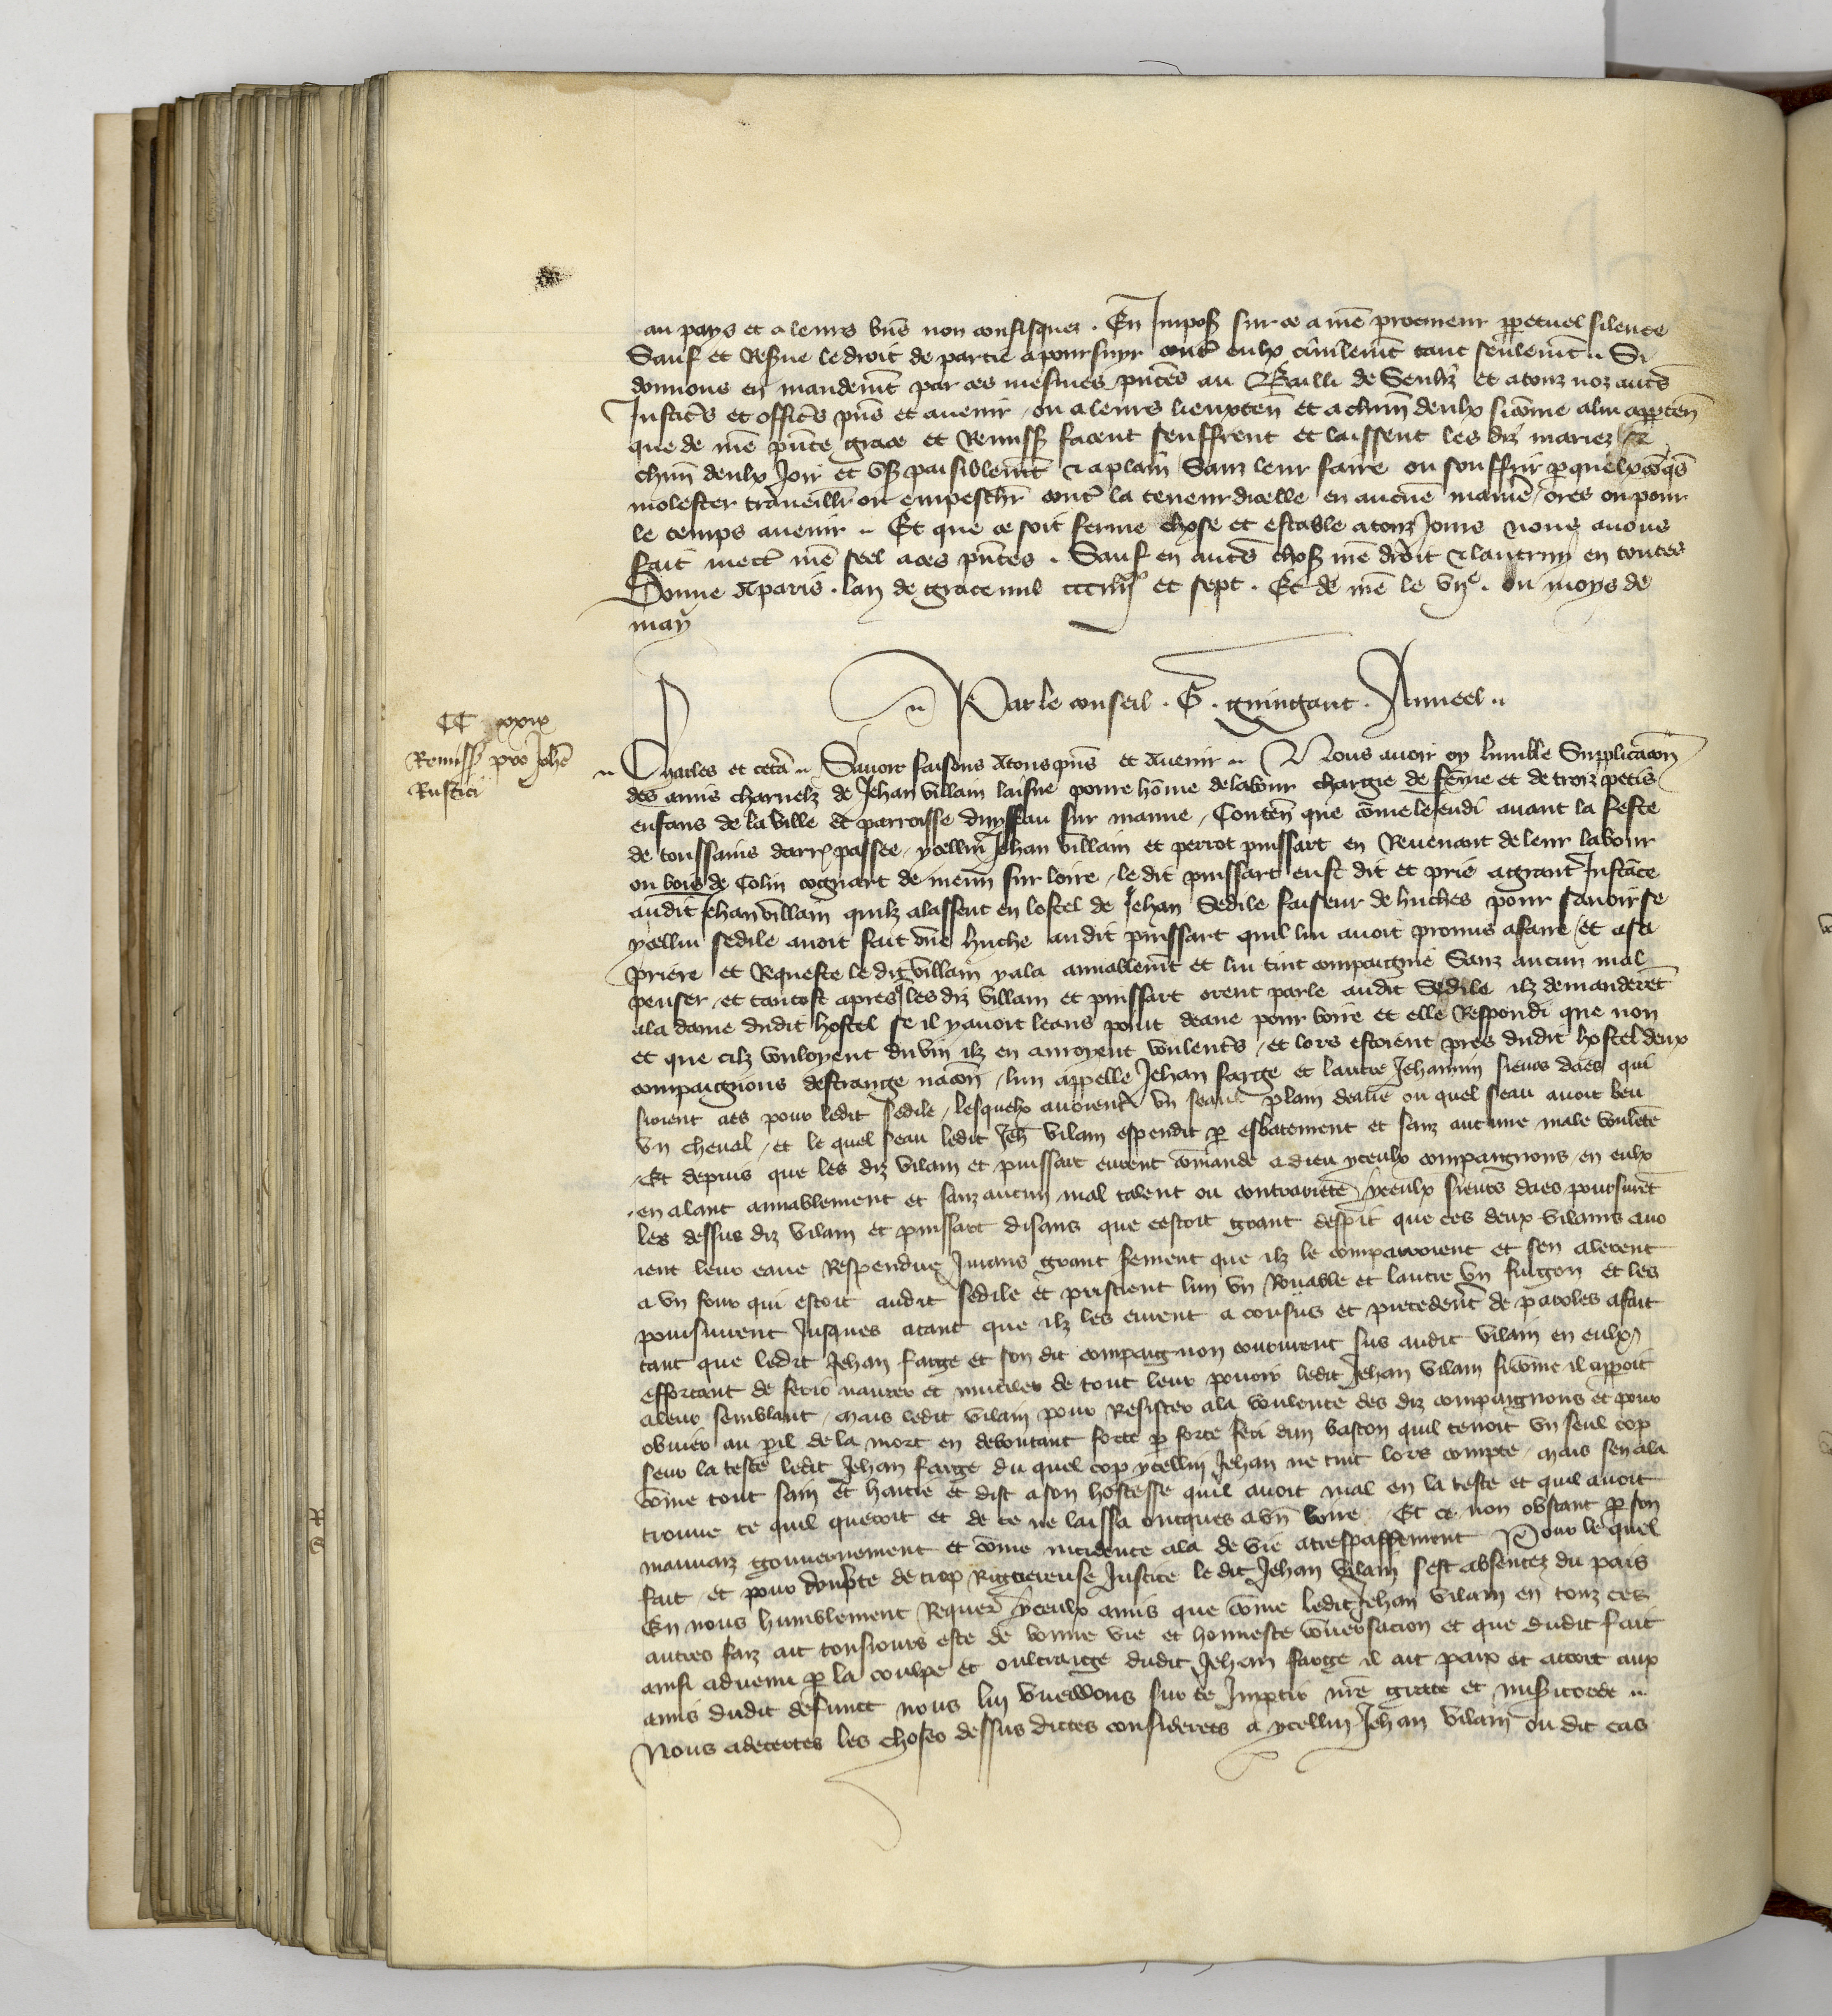 au pays et a leurs bn̄s non confisquez . En Imposˢ sur ce a nr̄e procureur ꝑpetuel silence
Sauf et Reserue le droit de partie a poursuyr contr̄ eulx ciuilemēt tant seulemēt .. Si
donnons en mandemēt par ces mesmes pn̄tes au Bailli de Senliz et a touz noz autrˢ
Justicˢ et officˢ pn̄s et auenir / ou a leurs lieuxten̄ et a chūn deulx sicōme a lui apꝑten̄
que de nr̄e pn̄te grace et Remissˢ facent seuffrent et laissent les diz mariez et
chūn deulx Joir et vsˢ paisiblemēt & a plain Sanz leur faire ou souffrir
molester trauaillˢ ou empeschˢ contr̄ la teneur dicelle en aucune manie / ores ou pour
le temps auenir .. Et que ce soit ferme chose et estable a touz Jours nous auons
fait mectr̄ nr̄e seel a ces pn̄tes . Sauf en autrˢ chosˢ nr̄e droit & lautruy en toutes
Donne A paris . lan de grace mil ccciiijˣˣ et sept . Et de nr̄e le vijᵉ . ou moys de
may
.. Par le conseil . G . guingant . Anneel ..
CC xxix
Remissˢ pro Joh̄e
Rustici
Charles et cetā .. Sauoir faisons A tous pn̄s et Auenir .. Nous auoir oy humble Supplicacōn
des amis charnelz de Jehan villain laisne poure hōme de labour chargie de fēme et de troiz petis
enfans de la ville et parroisse duysseau sur mauue / Conten̄ que cōme le lendi auant la feste
de toussains darrˢ passee / ycellui Jehan villain et perrot puissart en Reuenant de leur labour
ou bois de Colin cognart de meun sur loire / le dit puissart eust dit et prie a grant Instāce
audit Jehan villain quilz alassent en lostel de Jehan Sedile faiseur de huches pour sauoir se
ycellui sedile auoit fait vne huche audit puissart quil lui auoit promis a faire / et a sa
priere et Requeste le dit villain y ala amiablemēt et lui tint compaignie Sanz aucun mal
penser / et tantost apres les diz villain et puissart orent parle audit Sedile ilz demanderēt
a la dame dudit hostel se il y auoit leans point deaue pour boire et elle Respondi que non
et que cilz vouloyent du vin ilz en auroyent voulentˢ / et lors estoient pres dudit hostel deux
compaignons destrange nacōn / lun appelle Jehan farge et lautre Jehannin sieurs daes qui
sioient aes pour ledit sedile / lesquelx auoient vn seau plain deaue ou quel seau auoit beu
vn cheual / et le quel seau ledit Jeh̄ vilain espendit ꝑ esbatement et sanz aucune male voulēte
Et depuis que les diz vilain et puissart eurent cōmande a dieu yceulx compaignons / en eulx
en alant amiablement et sanz aucun mal talent ou contrariete / yceulx sieurs daes poursuirēt
les dessus diz vilain et puissart disans que cestoit grant despit que ces deux vilains auo
ient leur eaue Respendue Jurans grant sement que ilz le comparroient et sen alerent
a vn four qui estoit audit sedile et pristrent lun vn Rouable et lautre vn furgon et les
poursuirent Jusques a tant que ilz les eurent aconsuis et procederēt de paroles a fait
tant que ledit Jehan farge et son dit compaignon coururent sus audit vilain en eulx
efforcant de ferir naurer et mutiler de tout leur pouoir ledit Jehan vilain sicōme il apꝑoit
a leur semblant / mais ledit vilain pour Resister a la voulente des diz compaignons et pour
obuier au ꝑil de la mort en deboutant force ꝑ force feri dun baston quil tenoit vn seul cop
seur la teste ledit Jehan farge du quel cop ycellui Jehan ne tint lors compte / mais sen ala
cōme tout sain et haitie et dist a son hostesse quil auoit mal en la teste et quil auoit
trouue ce quil queroit et de ce ne laissa oncques a vn boire . Et ce non obstant ꝑ son
mauuaiz gouuernement et cōme incidence ala de vie a trespassement Pour le quel
fait et pour doubte de trop Rigoreuse Justice le dit Jehan vilain sest absentez du pais
En nous humblement Requerˢ yceulx amis que cōme ledit Jehan vilain en touz ces
autres faiz ait tousiours este de bonne vie et honneste cōuersacion et que dudit fait
ainsi aduenu ꝑ la coulpe et oultraige dudit Jehan farge il ait paix et acort aux
amis dudit defunct nous lui vueillons sur ce Impartir nr̄e grace et misericorde ..
Nous adecertes les choses dessus dictes considerees a ycellui Jehan vilain ou dit cas